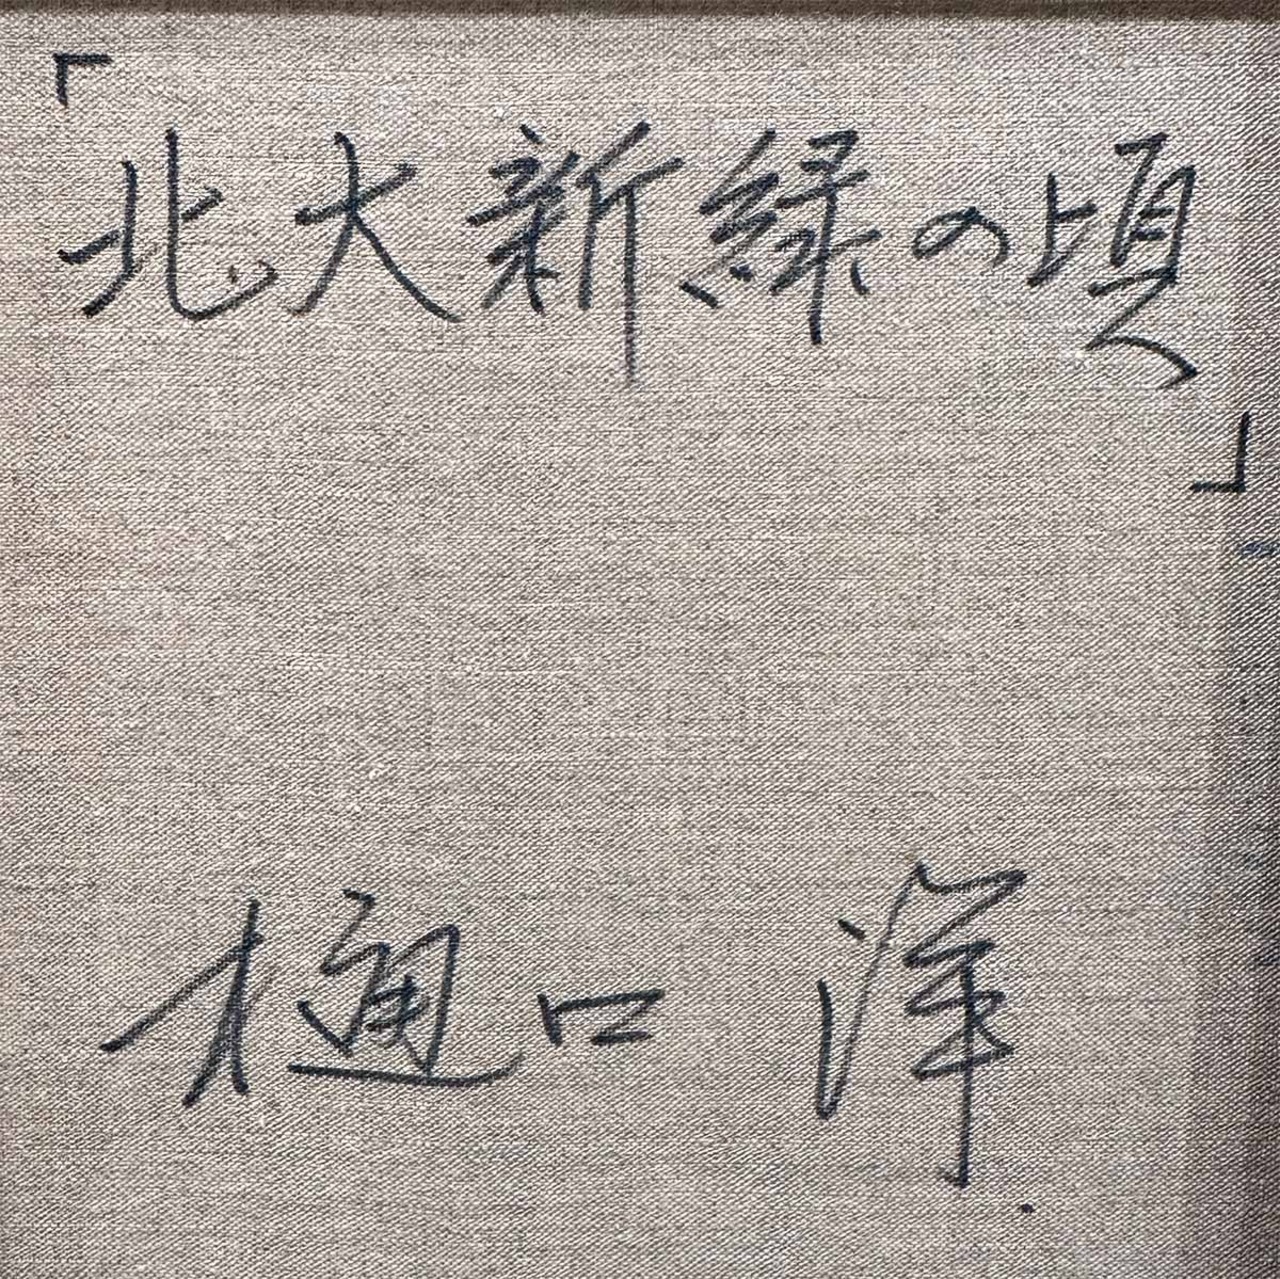 「北大新緑の頃」
樋口 洋